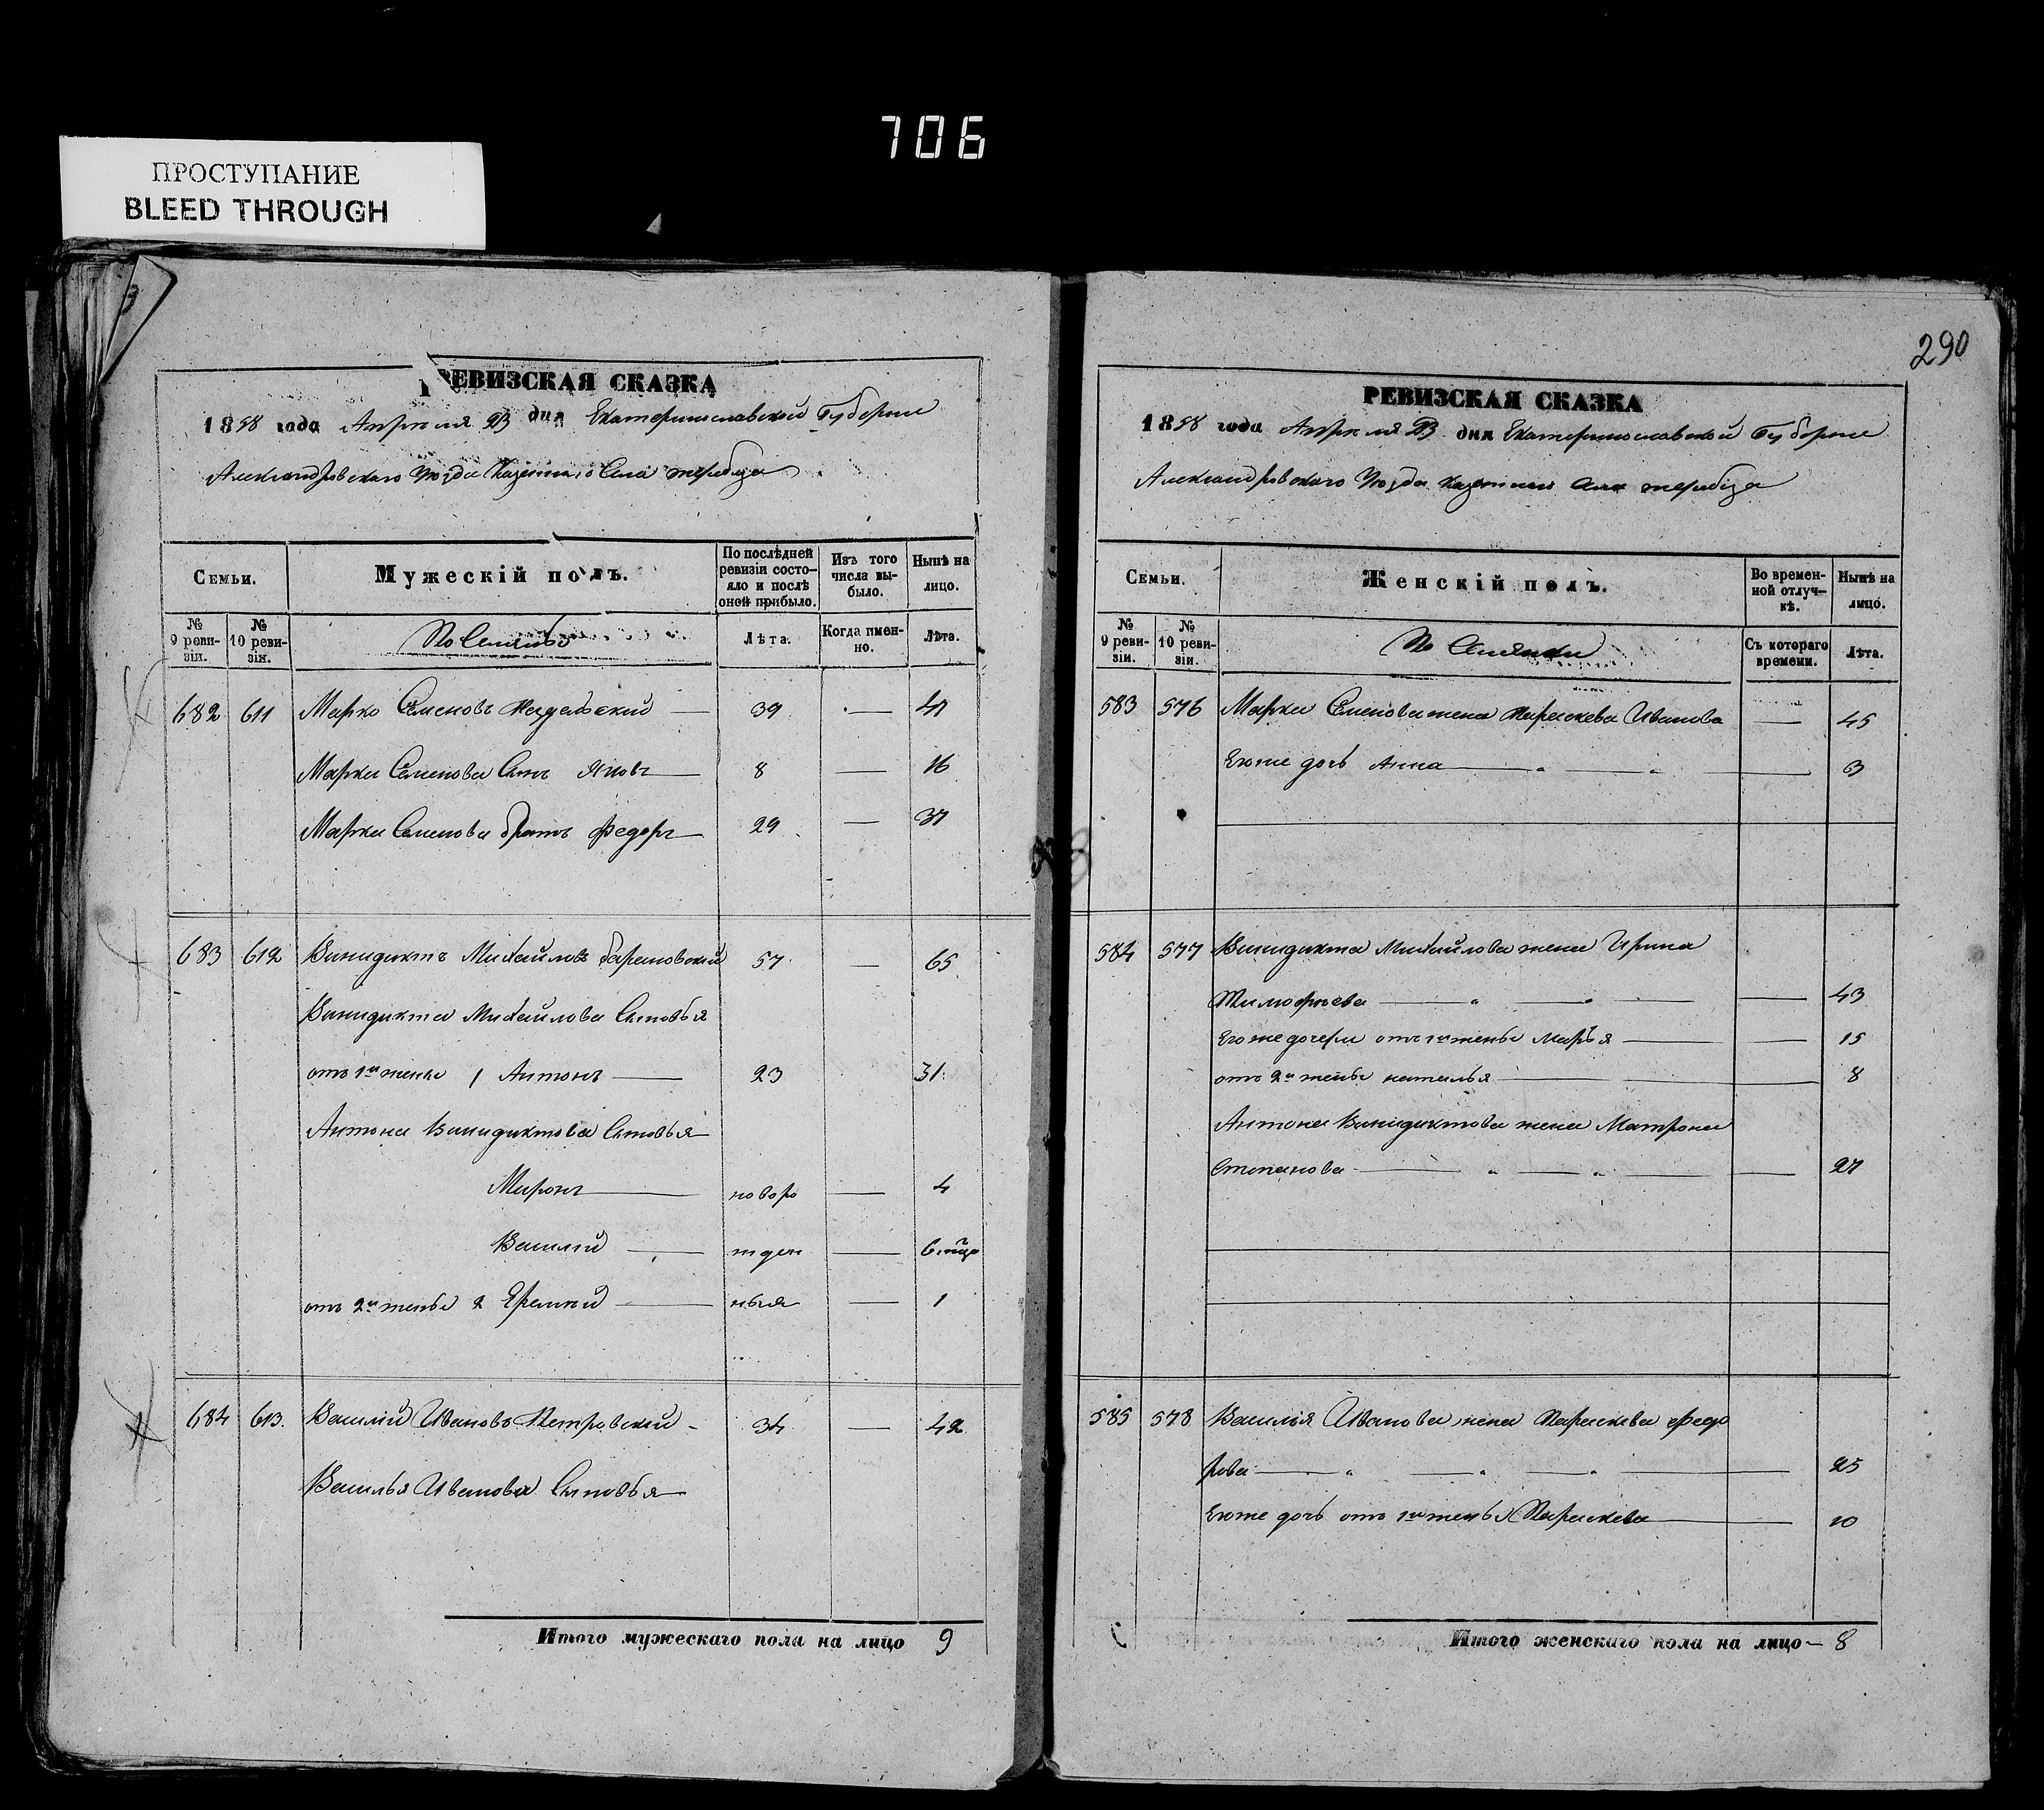 706
ПРОСТУПАНИЕ
BLEED THROUGH
290
РЕВИЗСКАЯ СКАЗКА
1858 года Апреля дня Екатеринославской Губернии
Александровскаго Уезда Казеннаго Села
Семьи.
Мужескій полъ.
По послѣдней ревизіи состояло и послѣ оной прибыло.
Изъ того числа выбыло.
Нынѣ на лицо.
№ 9 ревизіи.
№ 10 ревизіи.
Лѣта.
Когда именно.
Лѣта.
682 611 Марко Семеновъ — 39 — 47
Марка Семенова Сынъ Яковъ — 8 — 16
Марка Семенова братъ Федоръ — 29 — 37
683 612 Винидиктъ Михайловъ 57 — 65
Винидикта Михайлова Сыновья
отъ 1й жены 1 Антонъ — 23 31
Антона Винидиктова Сыновья
Миронъ — новоро — 4
Василій — жден — 6
отъ 2й жены 2 Еремий — ныя — 1
684 613. Василий Ивановъ Петровский - 34 — 42
Василья Иванова Сыновья
Итого мужескаго пола на лицо 9
РЕВИЗСКАЯ СКАЗКА
1858 года Апреля дня Екатеринославской Губернии
Александровскаго Уезда Казеннаго Села
Семьи.
Женскій полъ.
Во временной отлучкѣ.
Нынѣ на лицо.
№ 9 ревизіи.
№ 10 ревизіи.
Съ котораго времени.
Лѣта.
583 576 Марка Семенова жена Параскева Иванова — 45
Его же дочь Анна — „ — „ — 3
584 577 Винидикта Михайлова жена Ирина
Тимофеева — „ — „ — 43
Его же дочери отъ 1й жены Марья — 15
отъ 2й жены наталья — 8
Антона Винидиктова жена Матрона
Степанова — „ — „ — 27
585 578 Василия Иванова жена Параскева Федо
рова — „ — „ — „ — 25
Его же дочь отъ 1й жены Параскева — 10
Итого женскаго пола на лицо — 8